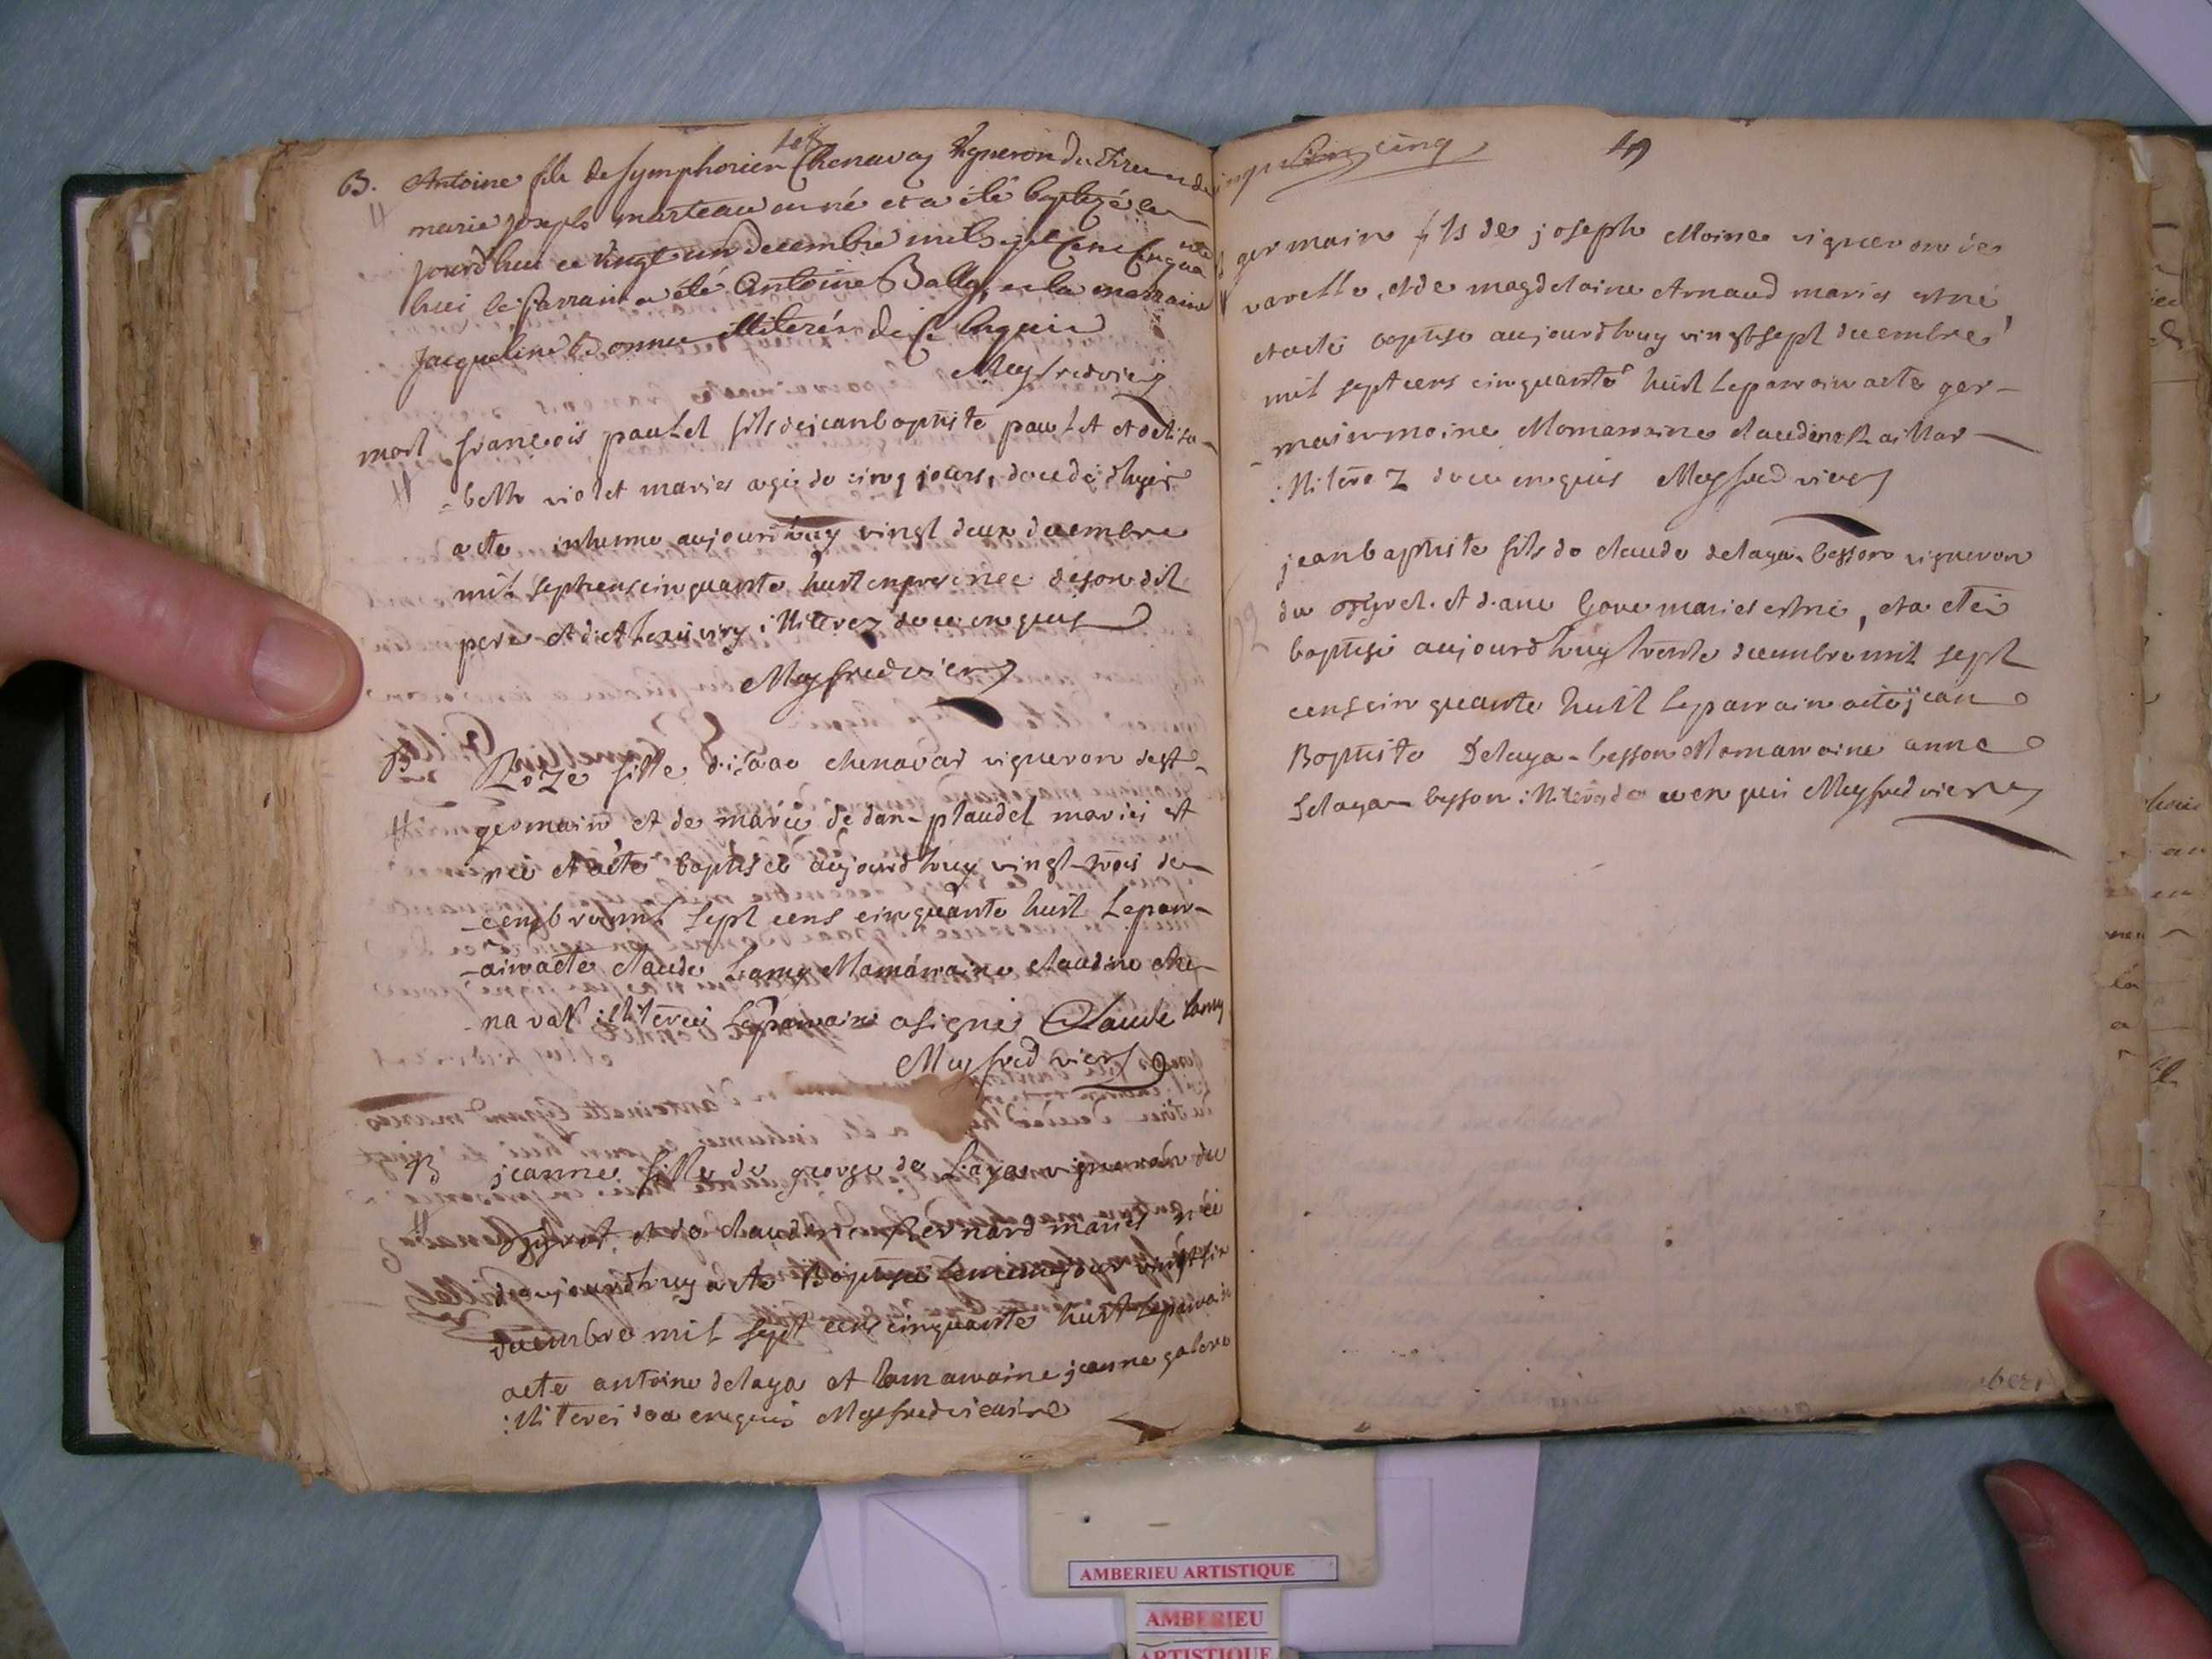 B. Antoine fils de Symphorien Chenavaz vigneron du Tiret et de
marie joseph marteau est né et a été baptizé ce
jourd'hui ce vingt un decembre mil sept cent cinquante
huit le parrain a été Antoine Ballay, et la marraine
jacqueline Bonnee illiterés de ce enquis
Meyfredvier
mort françois paulet fils de jean baptiste paulet et d'elisa-
-beth violet mariés agé de cinq jours, decedé d'hyer
a ete inhumé aujourdhuy vingt deux decembre
mil sept cens cinquante huit en presence de son dit
pere et de illiterez de ce enquis
Meyfredvier
B Roze fille d'isaac chenavas vigneron de st
germain et de marie de dan-plaudel mariés est
née et a ete baptisée aujourdhuy vingt-trois de-
-cembre mil sept cens cinquante huit Le parr-
-ain a ete claude Lamy et la marraine claudine che-
-navas illiteree Le parrain a signé Claude Lamy
Meyfredvier
B jeanne fille de george de Laya vigneron du
et de claudine Bernard mariés née
d'aujourdhuy a ete Baptisée le meme jour vingt six
decembre mil sept cens cinquante huit Le parrain
a ete antoine delaya et La marraine jeanne
illiterés de ce enquis Meyfredvier
cinq 49
germain fils de joseph Moine vigneron de
vareille, et de magdelaine Arnaud mariés est né,
et a eté baptisé aujourdhuy vingt sept decembre
mil sept cens cinquante huit Le parrain a ete ger-
-main moine et la marraine claudine
illiterez de ce enquis Meyfredvier
jean baptiste fils de claude delaya-besson vigneron
du et d'anne Gove mariés est né, et a eté
baptisé aujourdhuy trente decembre mil sept
cens cinquante huit Le parrain a eté jean
Baptiste Delaya-besson et La marraine anne
delaya-besson illiterés de ce enquis Meyfredvier
AMBERIEU ARTISTIQUE
AMBERIEU
ARTISTIQUE